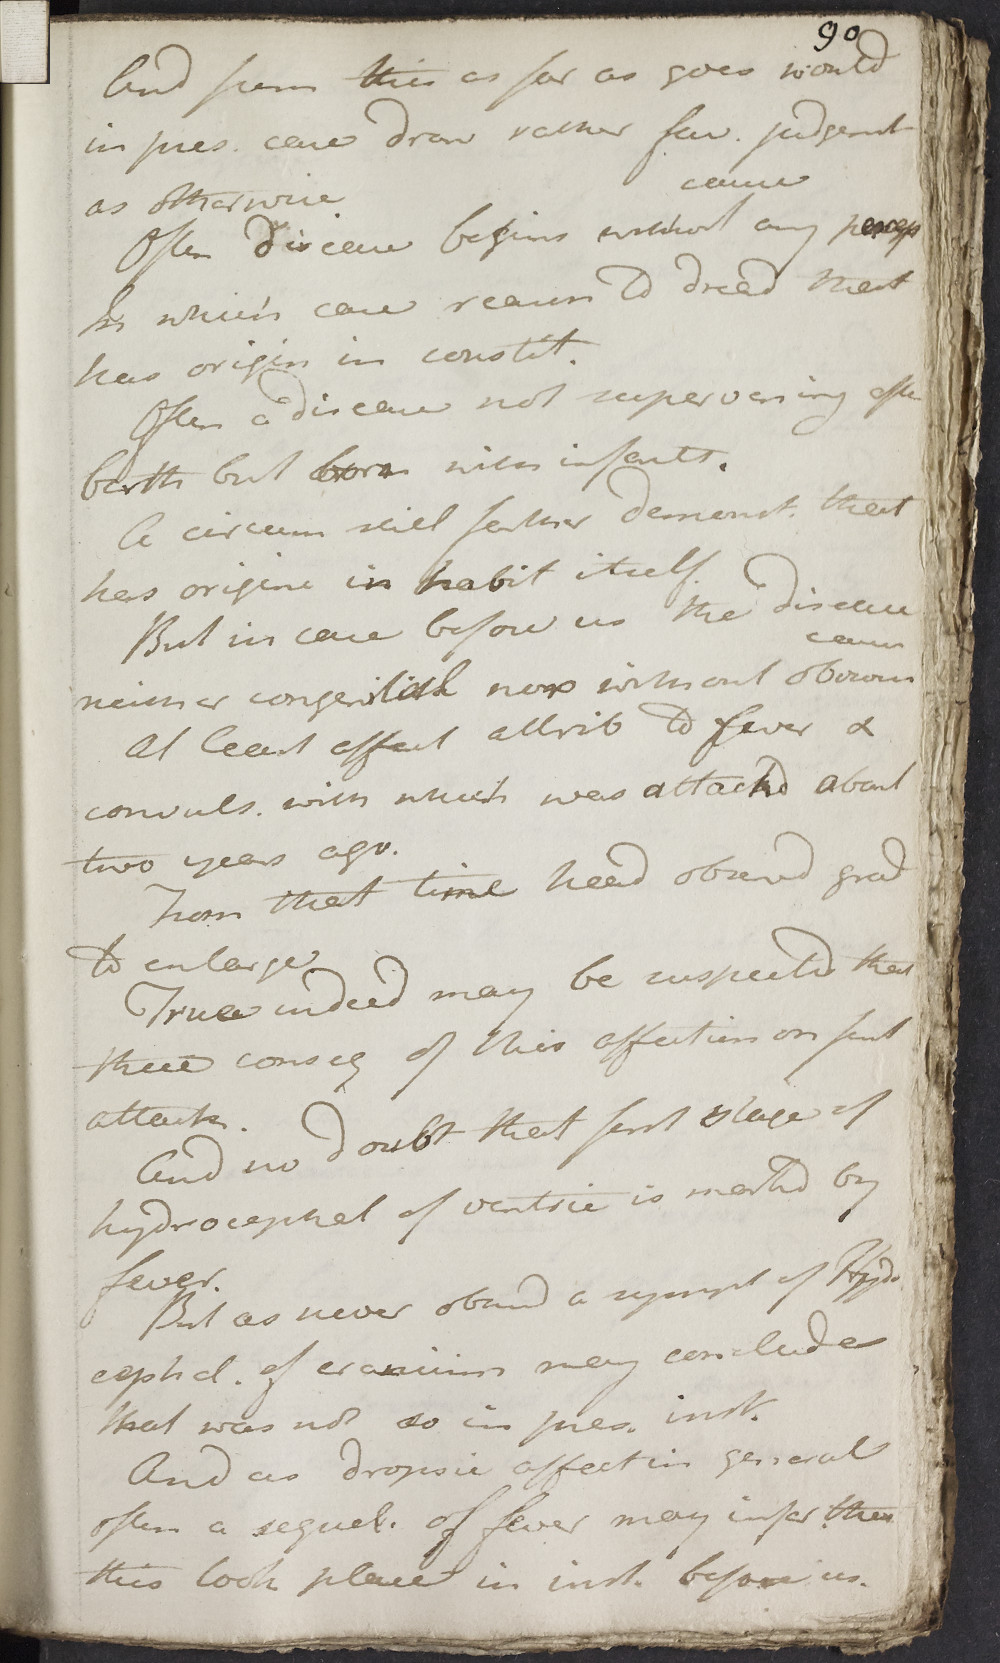 90
And from this as far as goes would
in pres. case draw rather fav. judgemt
as otherwise
cause
Often disease begins without any percep
In which case reason to dread that
has origin in constit.
Often a disease not supervening after
birth but born with infants.
A circum still farther demonst. that
has origine in habit itself.
But in case before us the disease
cause
neither congenital nor without obvious
At least effect attrib to fever &
convuls. with which was attackd about
two years ago.
From that time head observd grad
to enlarge
True indeed may be suspected that
these conseq of this affection on first
attack.
And no doubt that first stage of
hydrocephal of ventric is markd by
fever.
But as never obsend a sympt of Hydo
cephal. of cranium may conclude
that was not so in pres. inst.
And as dropsic affect in general
often a sequel. of fever may infer that
this took place in inst. before us.